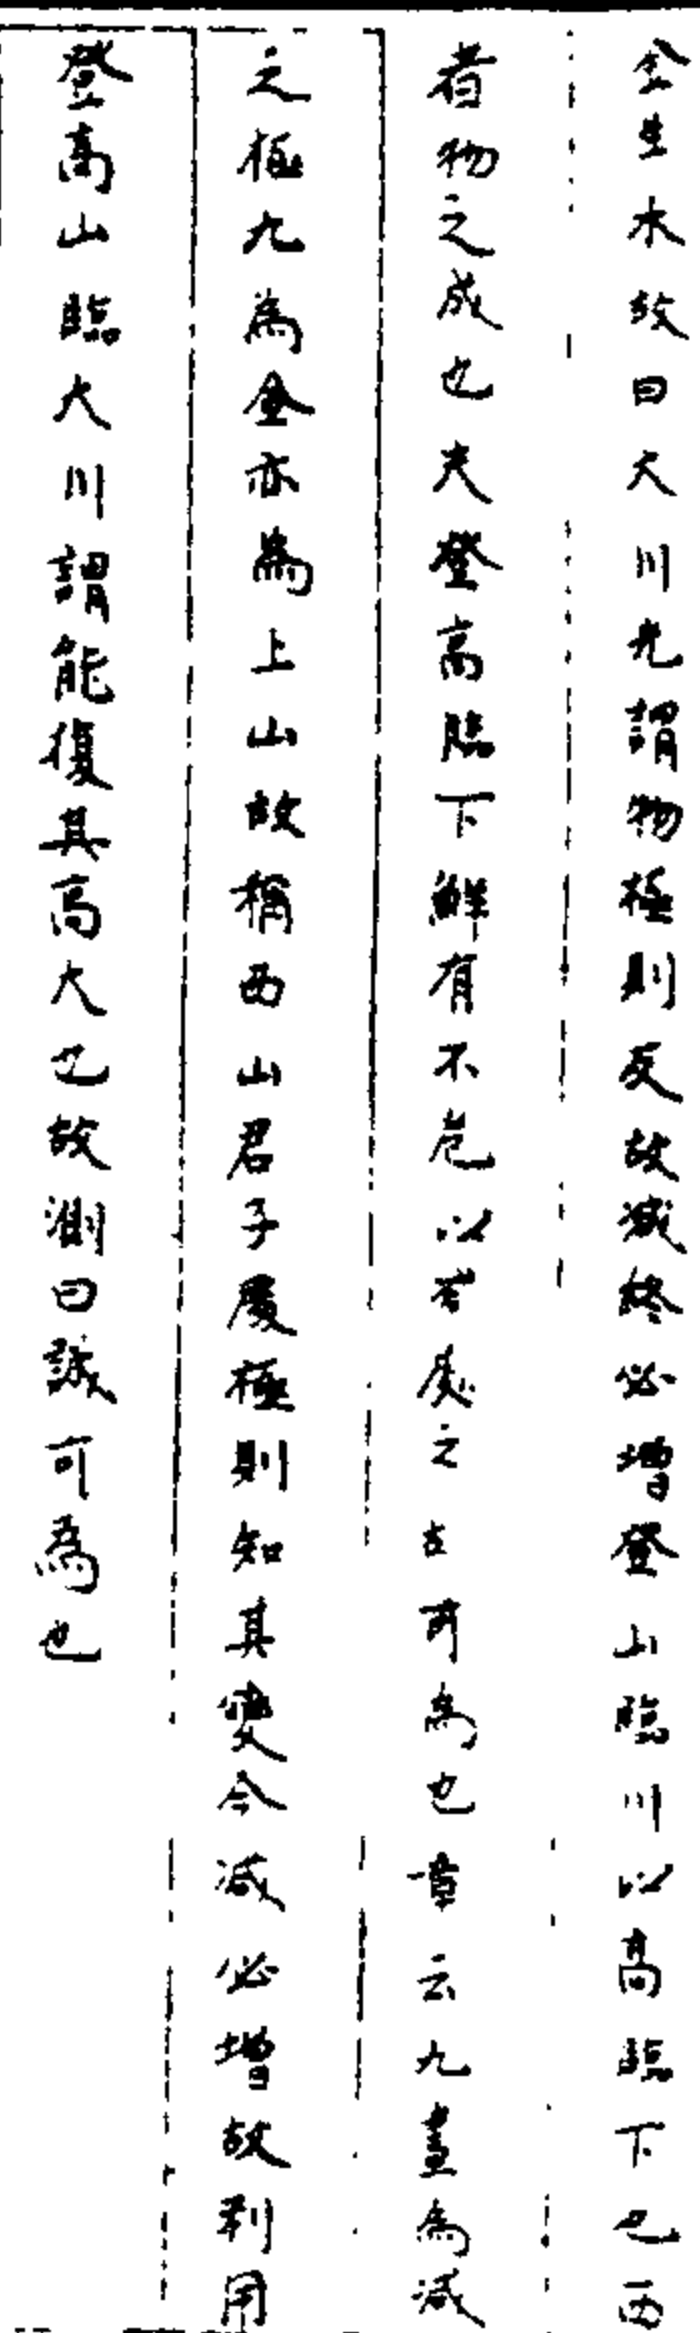 金生水故曰大川光謂物極則反故减終必增登山臨川以高臨下也西
者物之成也夫登高臨下鮮有不危以若處之吉可為也章云九晝為减
之極九為金亦為上山故稱西山君子處極則知其變今减必增故利用
登高山臨大川謂能復其高大也故測曰誠可為也